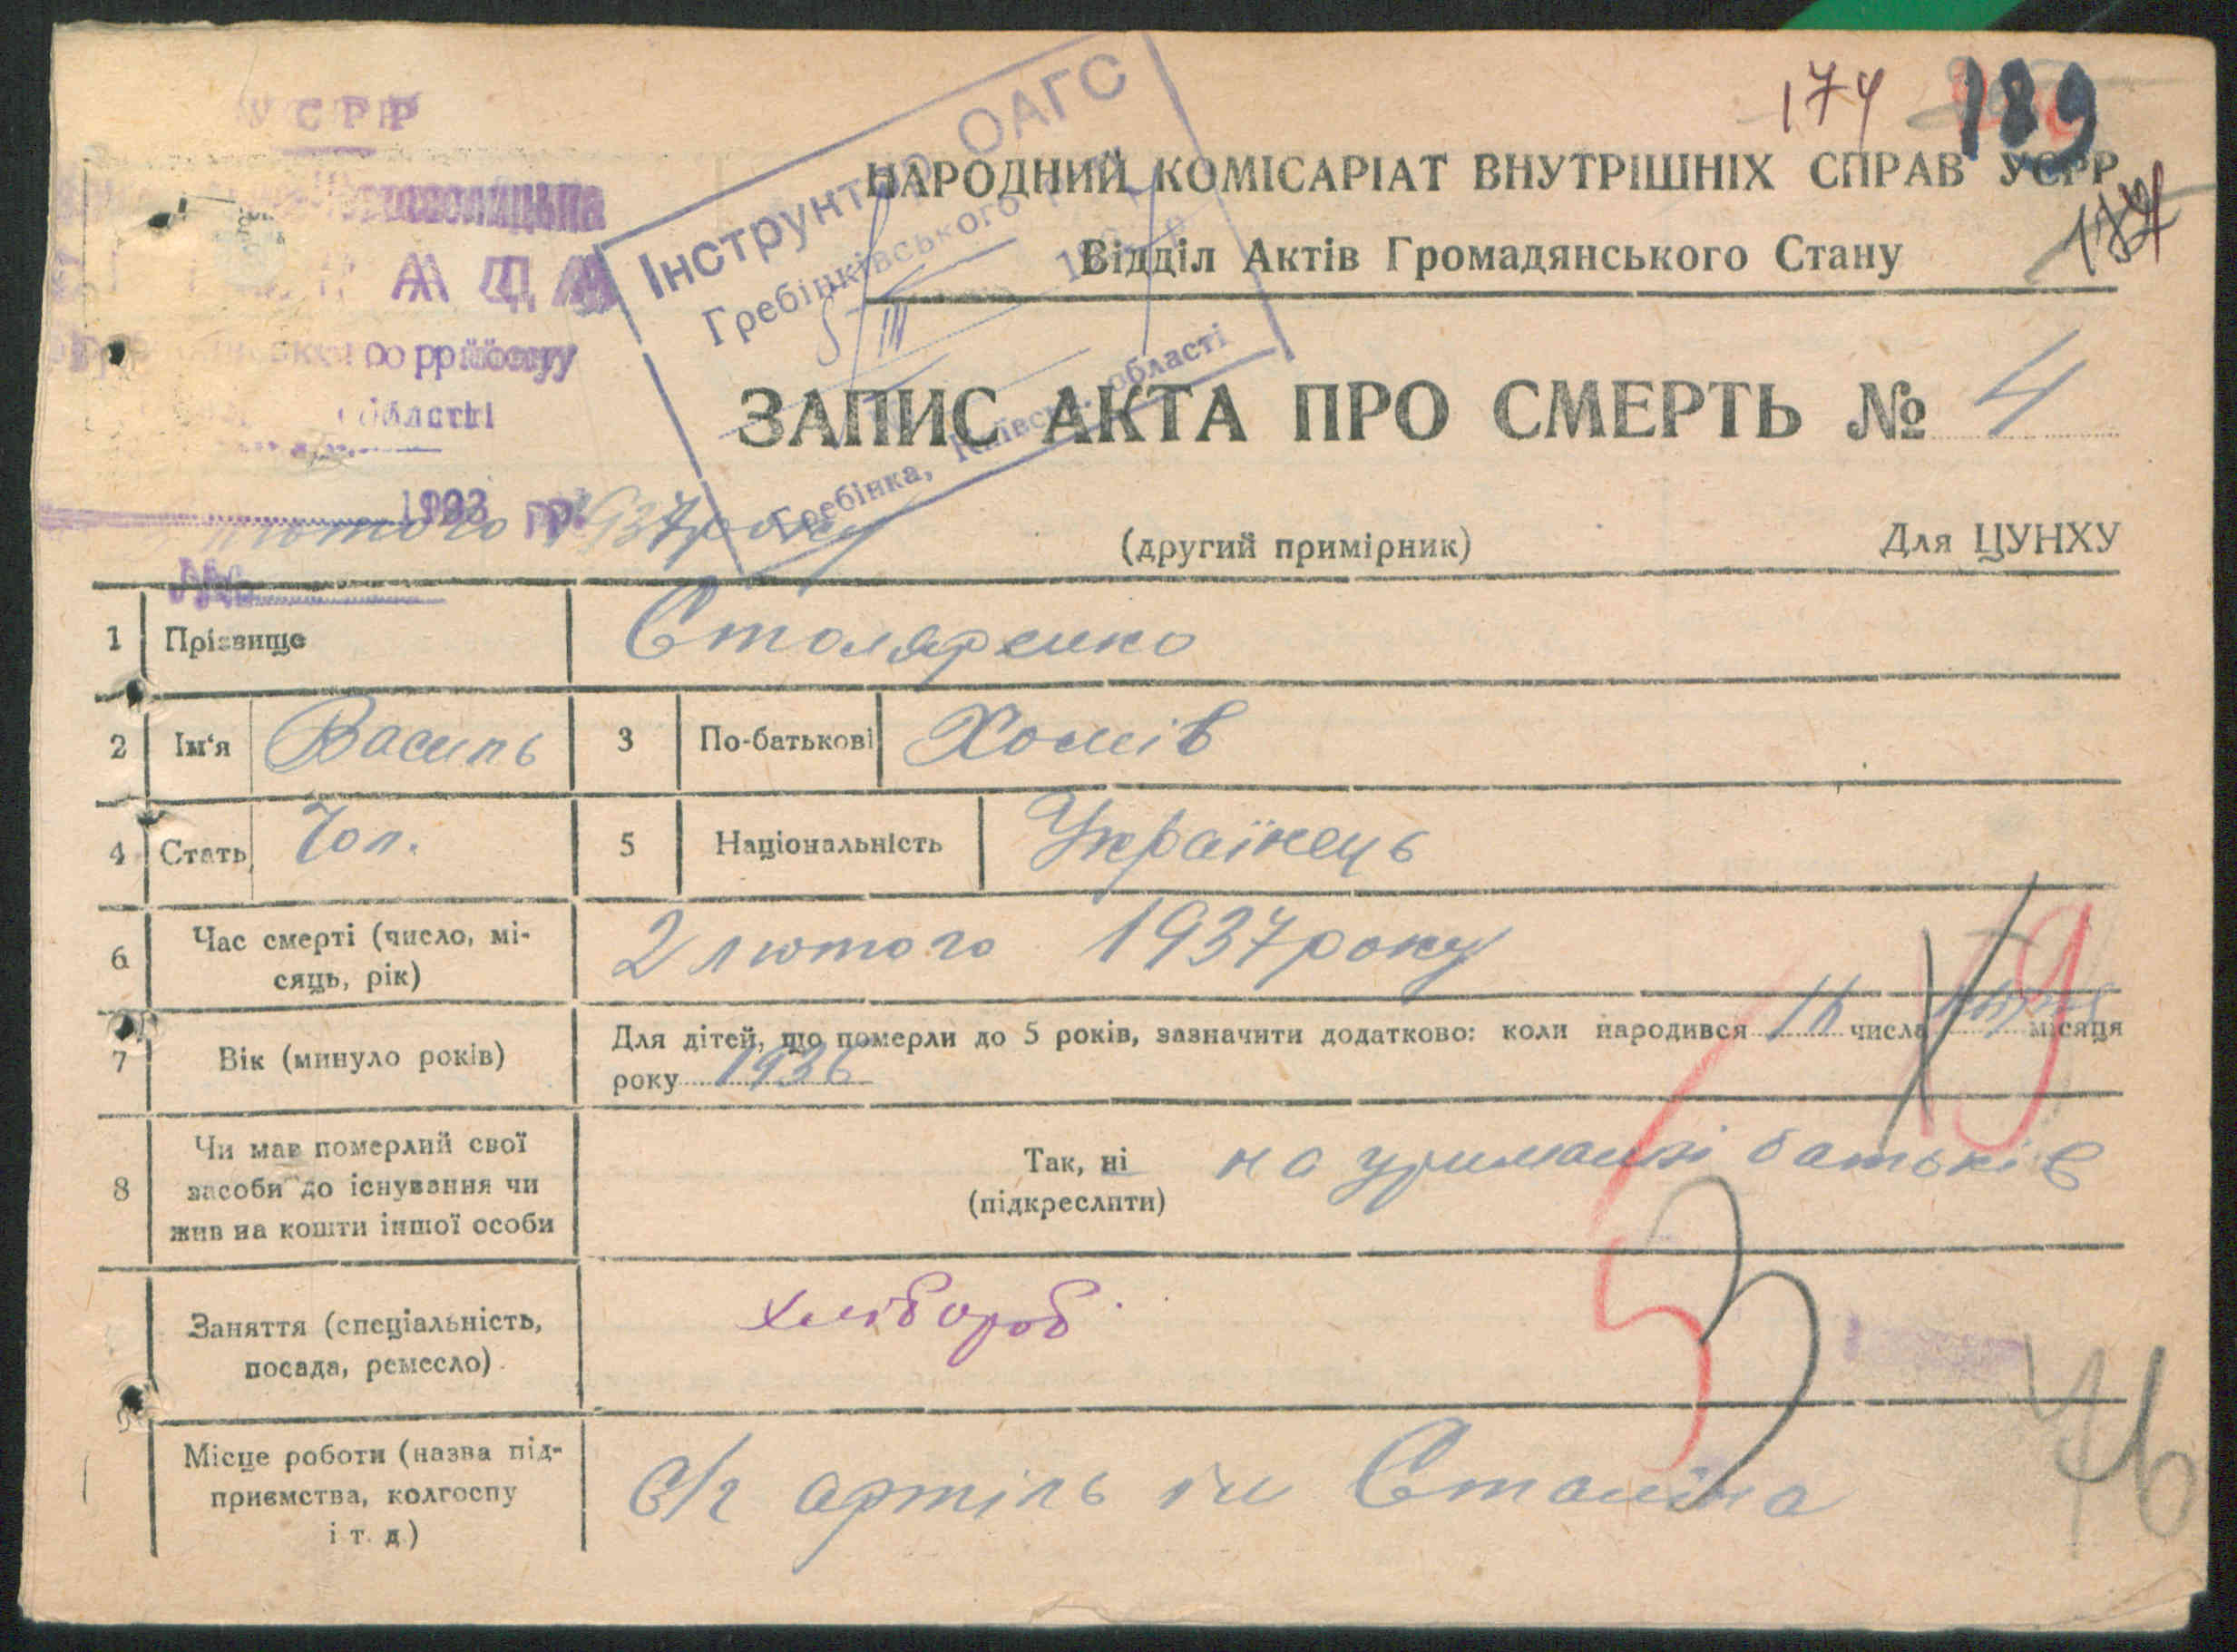 174 189
УСРР
НАРОДНИЙ КОМІСАРІАТ ВНУТРІШНІХ СПРАВ УСРР
Відділ Актів Громадянського Стану
Інструктор ОАГС
Гребінківського
Гребінка, Київськ. області
області
ЗАПИС АКТА ПРО СМЕРТЬ № 4
лютого 1937 року
(другий примірник) Для ЦУНХУ
№
1 Прізвище Столяренко
2 Ім'я Василь 3 По-батькові Хомів
4 Стать Чол. 5 Національність Українець
6 Час смерті (число, мі-
сяць, рік) 2 лютого 1937 року
7 Вік (минуло років) Для дітей, що померли до 5 років, зазначити додатково: коли народився 16 числа місяця
року 1936
8 Чи мав померлий свої
засоби до існування чи
жив на кошти іншої особи
Так, ні на утриманні батьків
(підкреслити)
Заняття (спеціальність,
посада, ремесло) хлібороб
Місце роботи (назва під-
приємства, колгоспу
і т. д.) С/г артіль ім Сталіна
46